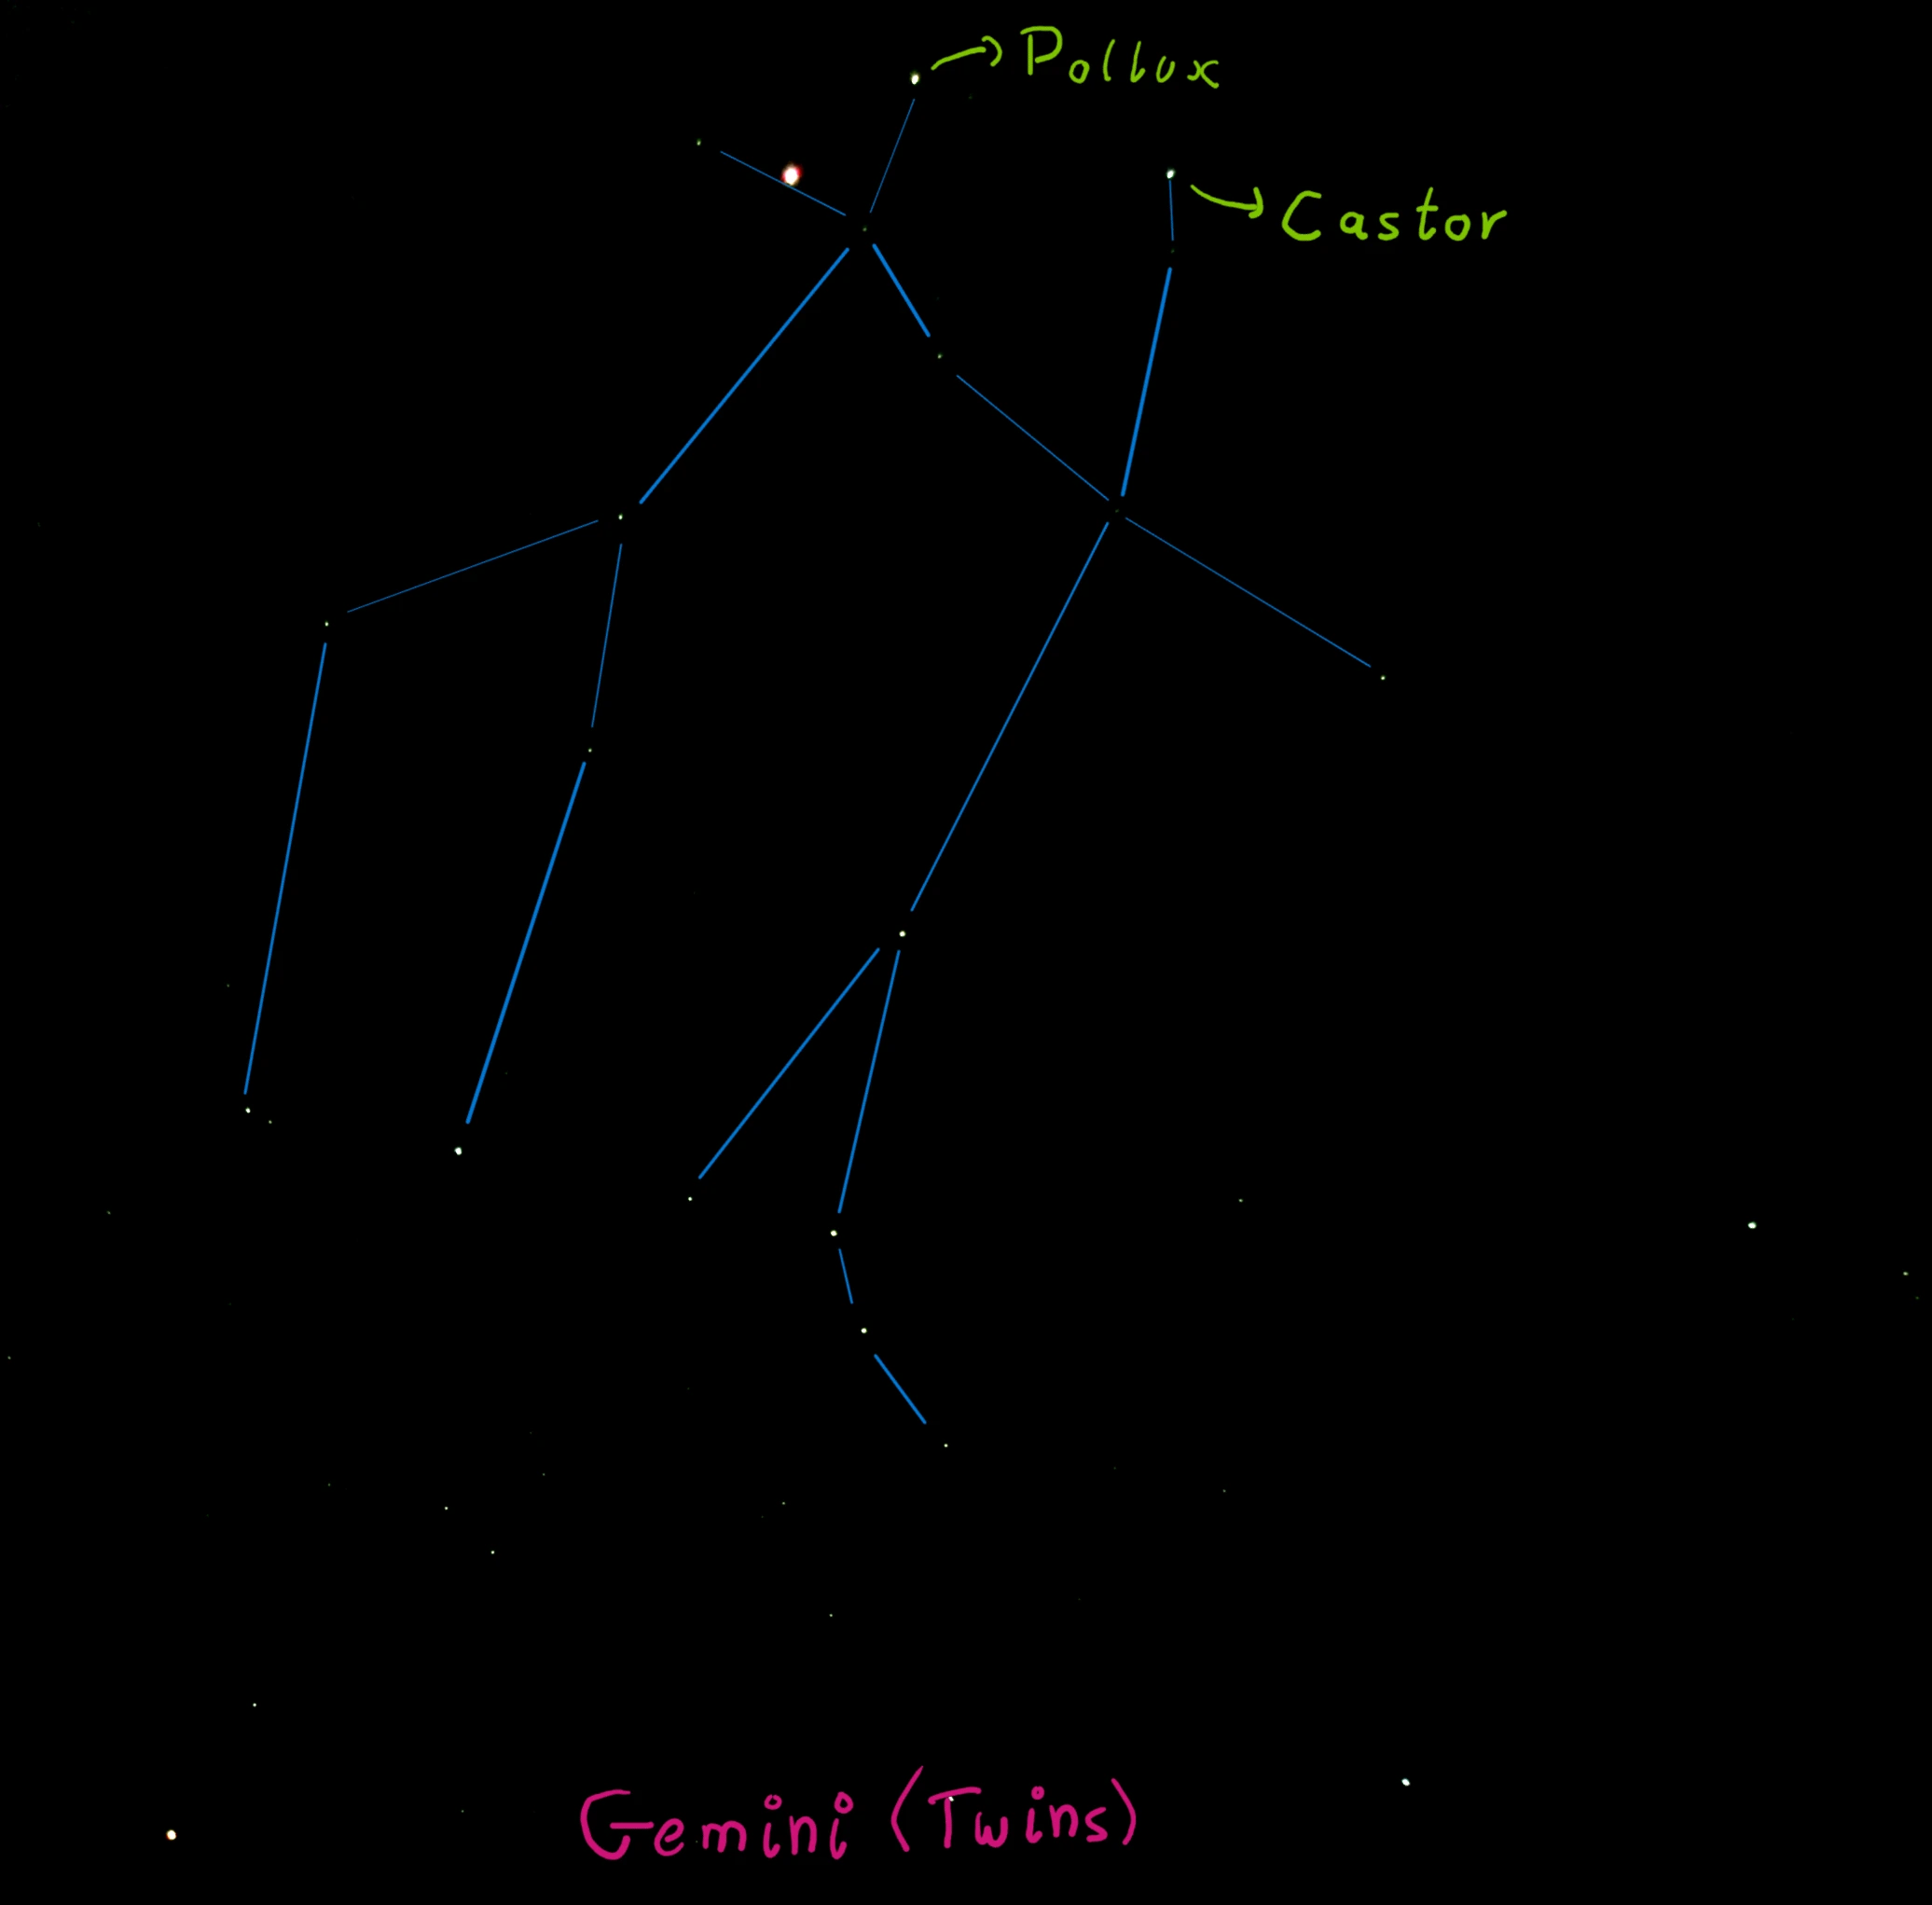 Pollux
Castor
Gemini (Twins)